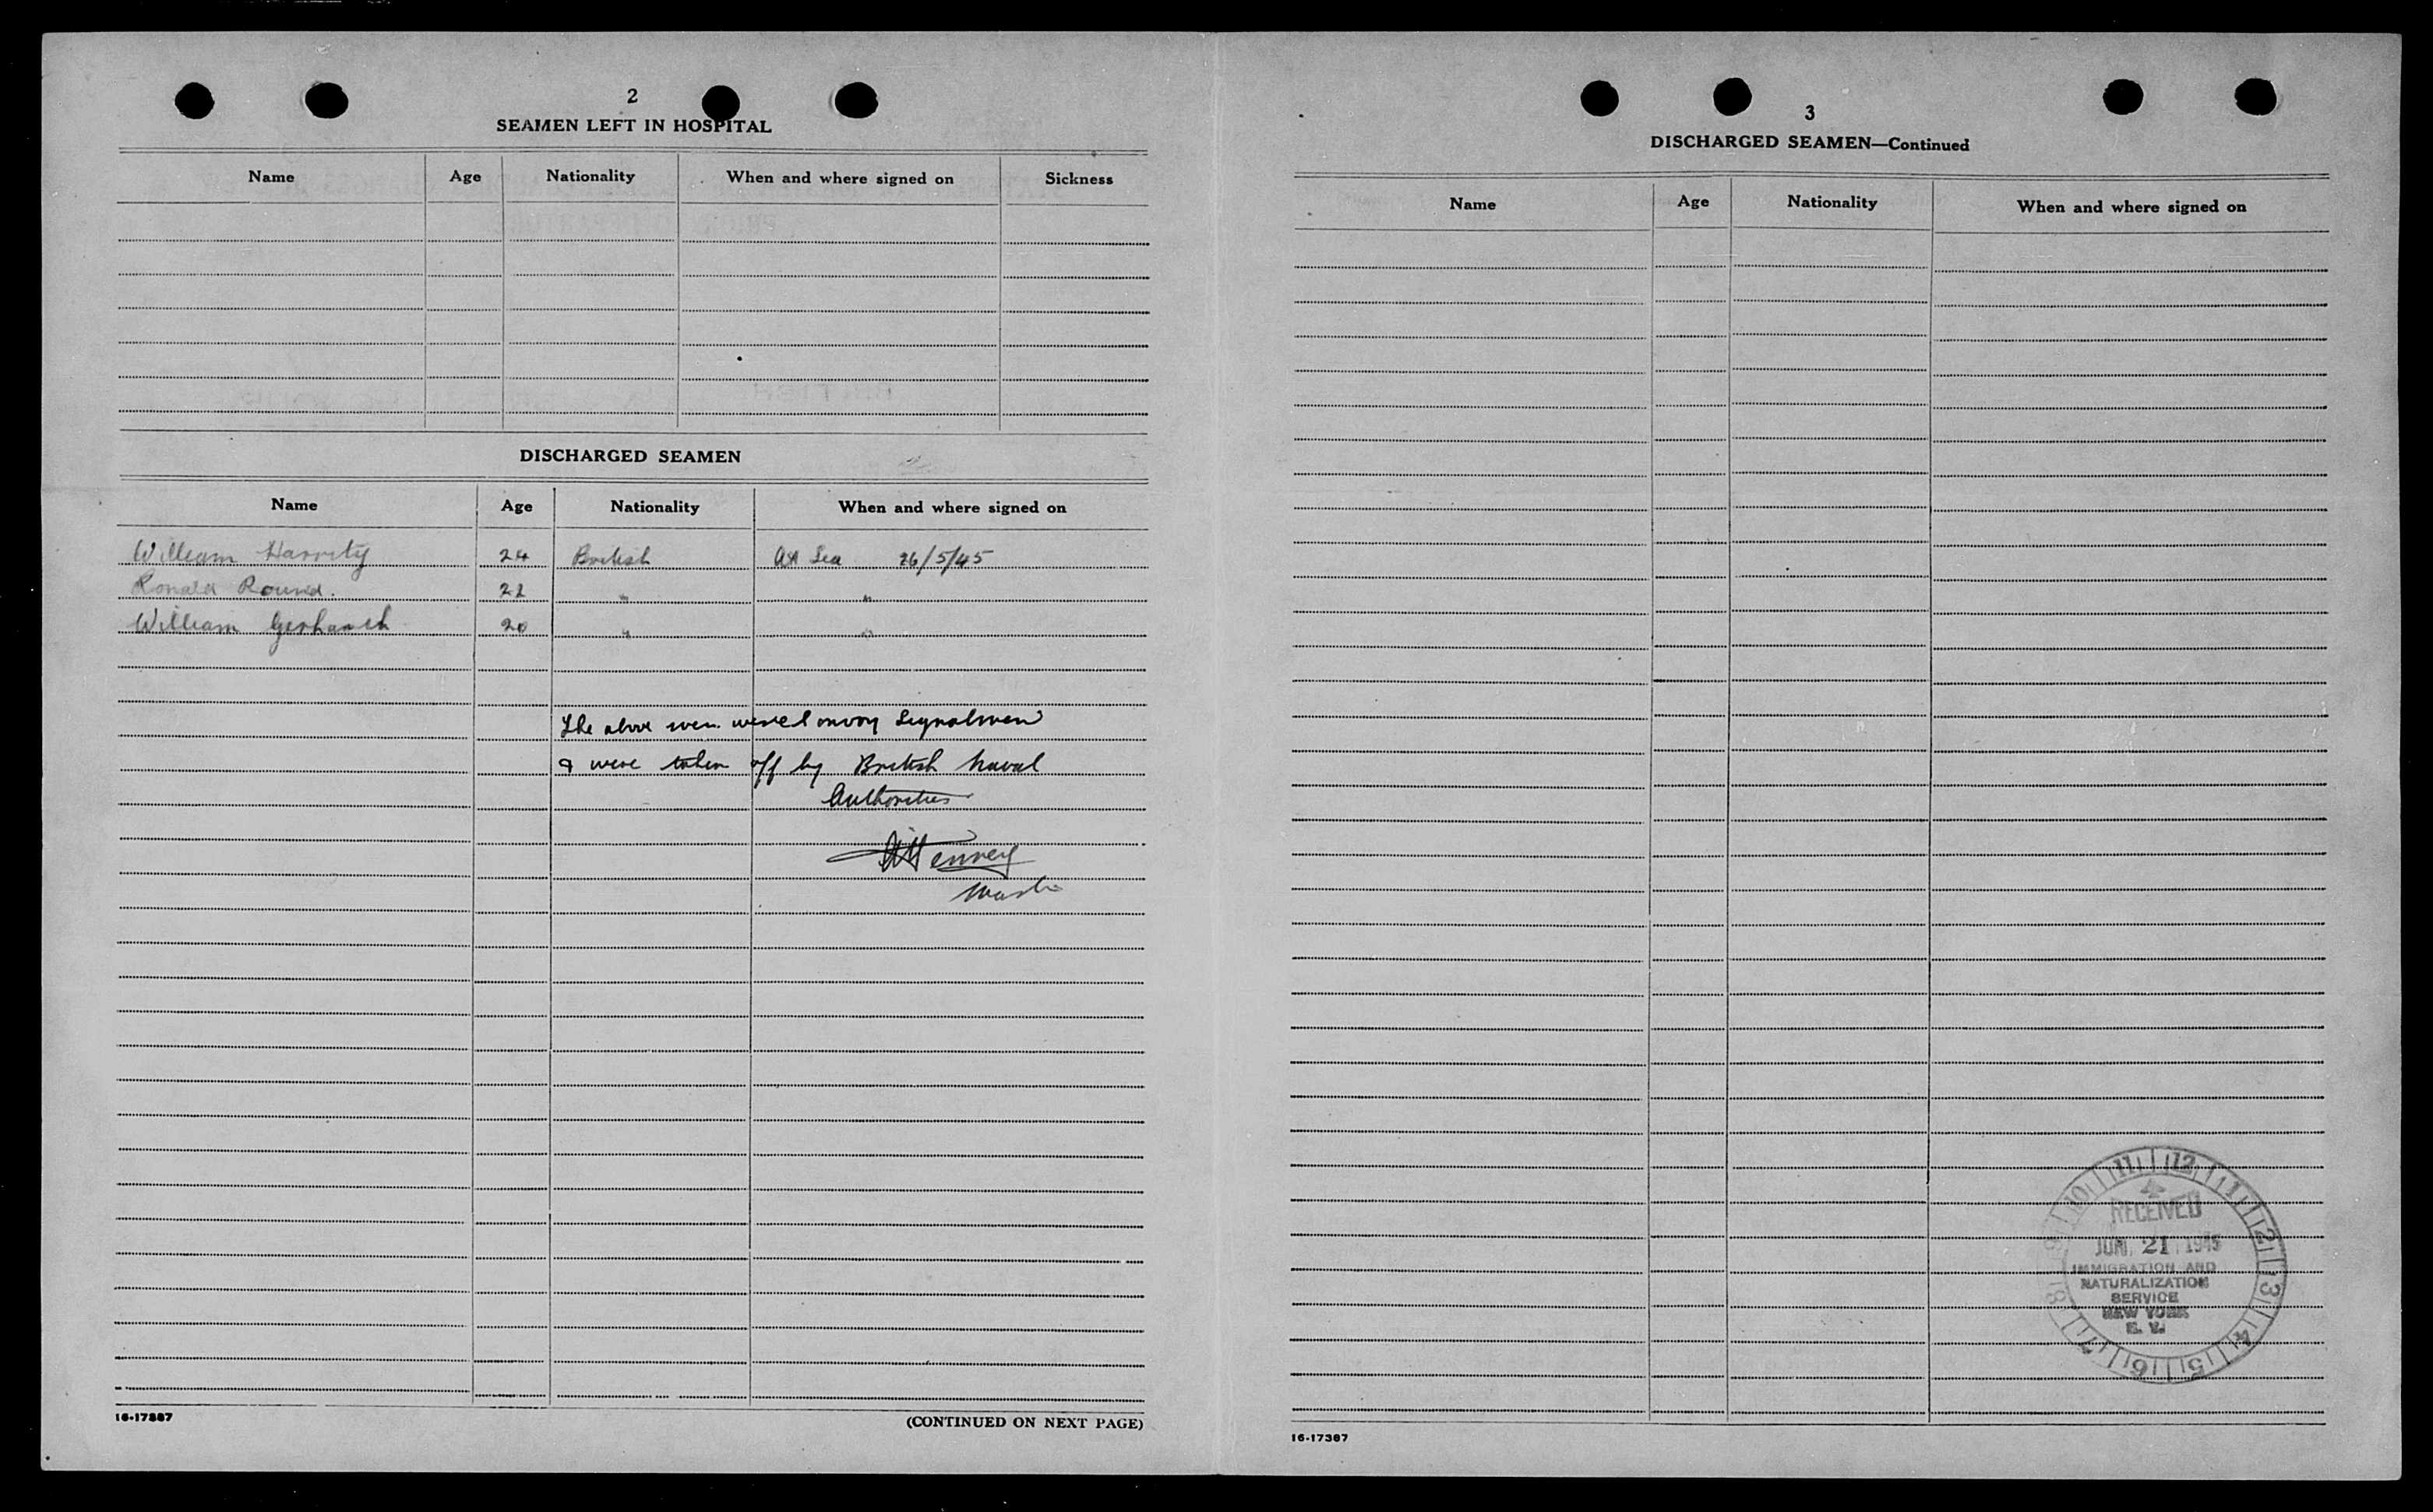 2
SEAMEN LEFT IN HOSPITAL
Name Age Nationality When and where signed on Sickness
DISCHARGED SEAMEN
Name Age Nationality When and where signed on
William Harrity 24 British At Sea 26/5/45
Ronald Round. " "
William 20 " "
The above men were Convoy Signalmen
& were taken off by British Naval
Authorities
16-17387
(CONTINUED ON NEXT PAGE)
3
DISCHARGED SEAMEN—Continued
Name Age Nationality When and where signed on
11 12 1 2 3 4 5 6 7 8 9 10
RECEIVED
JUN. 21. 1945
IMMIGRATION AND
NATURALIZATION
SERVICE
NEW YORK
16-17387